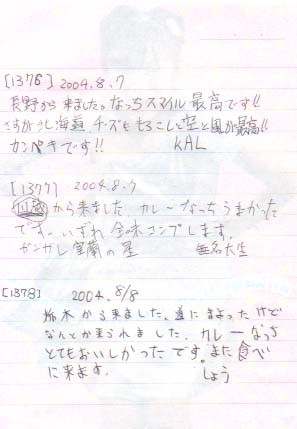 [1376] 2004.8.7
長野から来ました。なっちスマイル最高です!!
さすが北海道 チーズともろこしと空と風が最高!!
カンペキです!! KAL
[1377] 2004.8.7
から来ました カレーなっち うまかった
です。いずれ全味コンプします。
ガンガレ室蘭の星 無名大生
[1378] 2004. 8/8
栃木から来ました、道にまよったけど
なんとか来られました、カレーなっち
とてもおいしかったです。また食べ
に来ます。 しょう